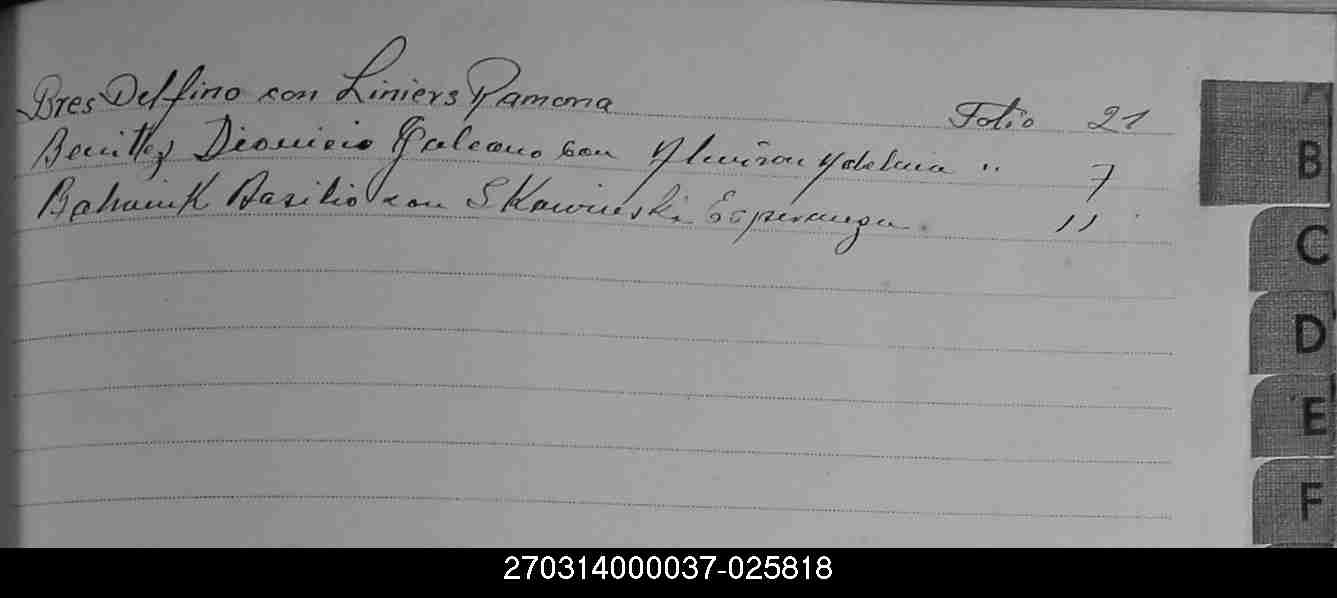 Bres Delfino con Liniers Ramona Folio 21
Benitez Dionicio Galeano con Almiron Ydelma " 7
Bahniuk Basilio con SKowineski Esperanza 11
B
C
D
E
F
270314000037-025818